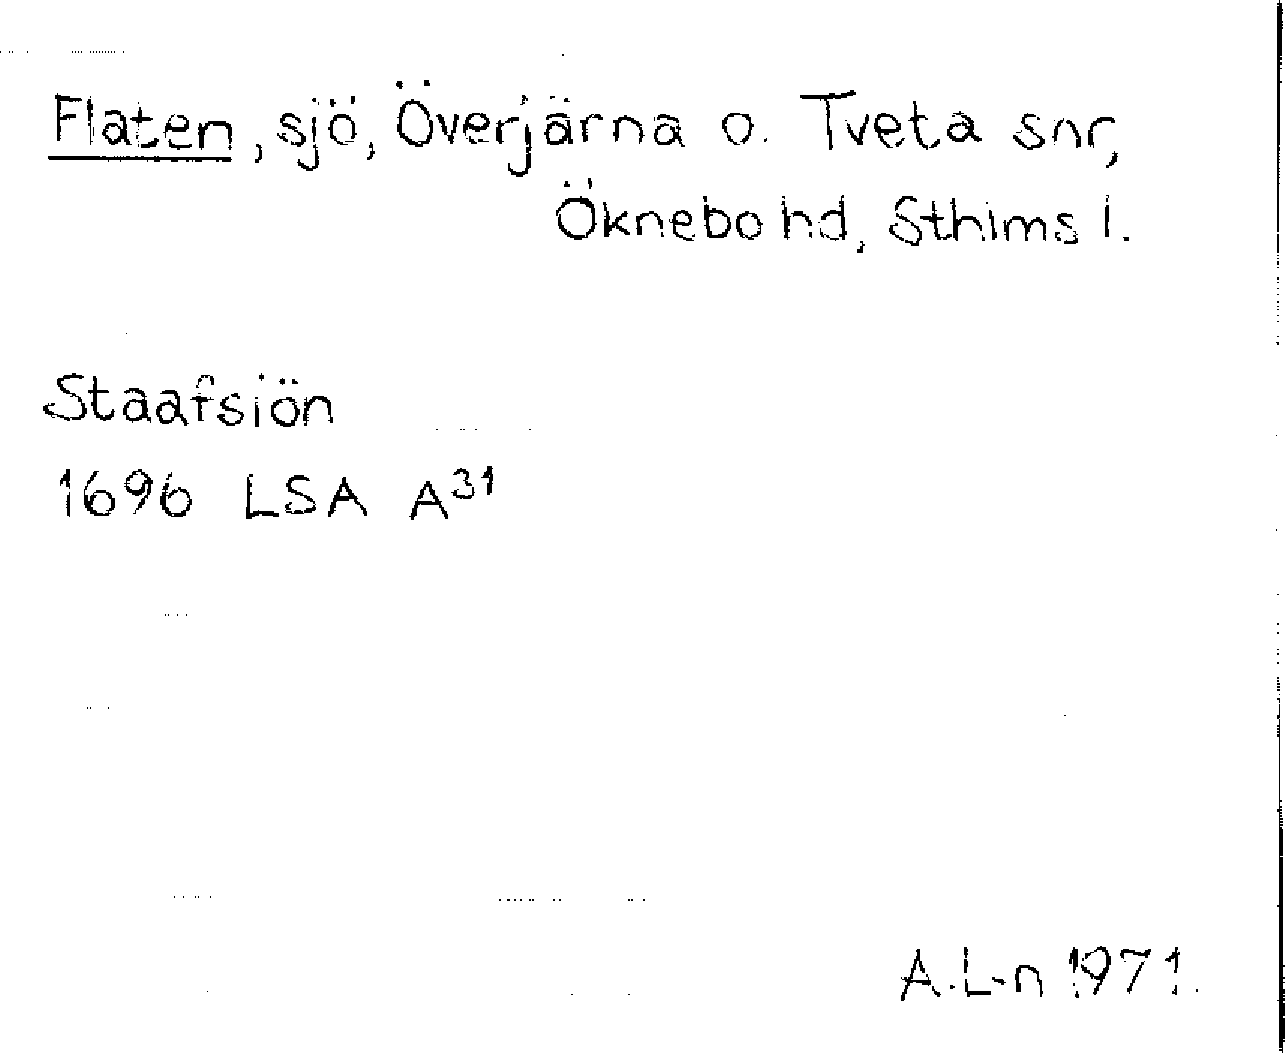 Flaten, sjö, Överjärna o. Tveta snr,
Öknebo hd, Sthlms l.
Staafsiön
1696 LSA A³¹
A.L-n 1971.